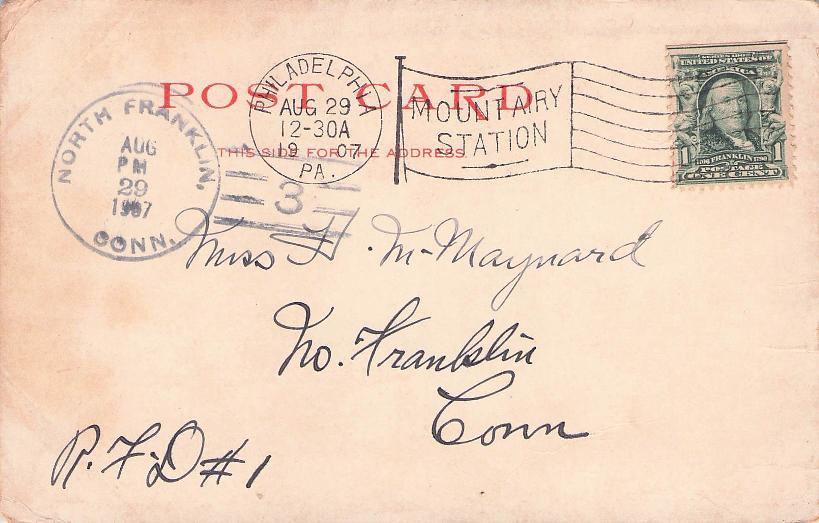 POST CARD
THIS SIDE FOR THE ADDRESS
PHILADELPHIA
AUG 29
12-30A
19 07
PA.
MOUNT AIRY
STATION
UNITED STATES OF
AMERICA
1 FRANKLIN 1
POSTAGE
ONE CENT
NORTH FRANKLIN,
AUG
PM
29
1907
CONN.
3
Miss F. M. Maynard
No. Franklin
Conn
R.F.D #1